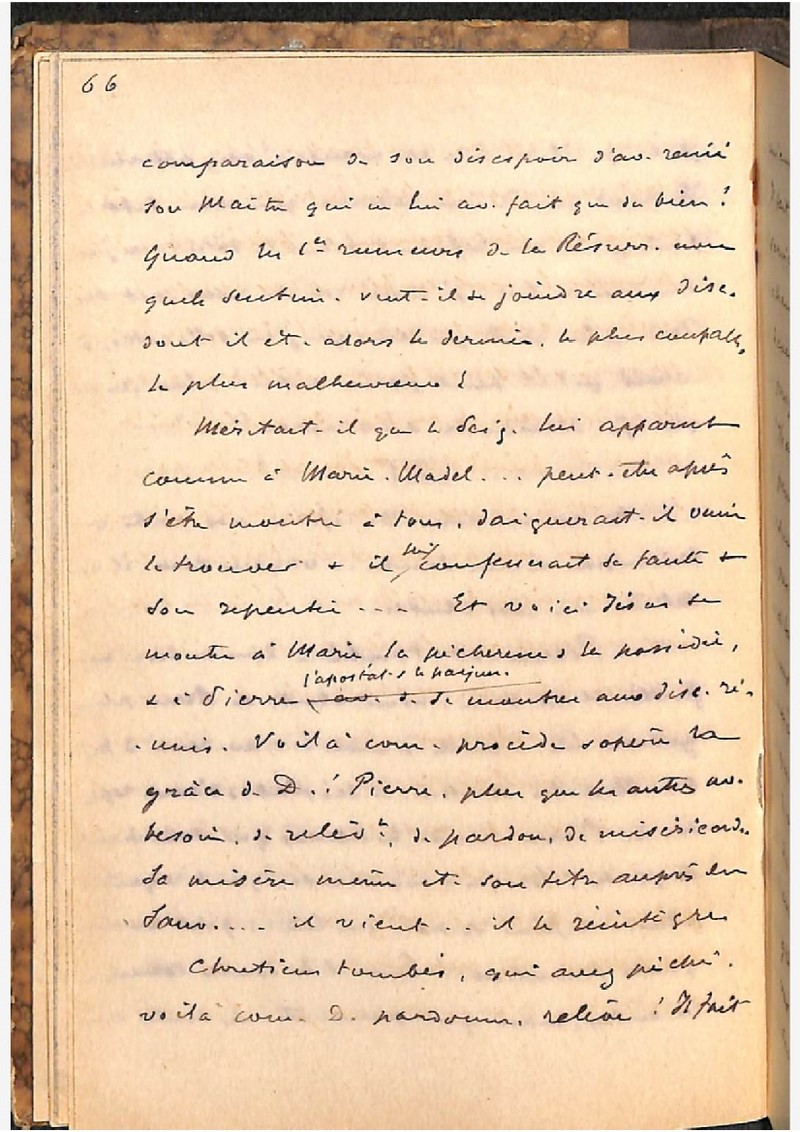 66
comparaison de son désespoir d'av. renié
son Maître qui ne lui av. fait que du bien !
Quand les 1ères rumeurs de la Résurr. avec
quels sentim. vient-il se joindre aux disc.
dont il ét. alors le dernier, le plus coupable,
le plus malheureux !
Méritait-il que le Seig. lui apparut
comme à Marie-Madel... peut-être après
s'être montré à tous, daignerait-il venir
le trouver & il confesserait sa faute &
son repentir .... Et voici Jésus se
montre à Marie la pécheresse & la possédée,
l'apostat & le parjure.
& à Pierre av. d. se montrer aux disc. ré-
unis. Voilà com. procède & opère la
grâce de D. ! Pierre, plus que les autres av.
besoin, de relèvt, de pardon, de miséricorde.
Sa misère même ét. son titre auprès du
Sauv.... il vient .. il le réintègre
Chrétiens tombés, qui avez péché,
voilà com. D. pardonne, relève ! Il fait